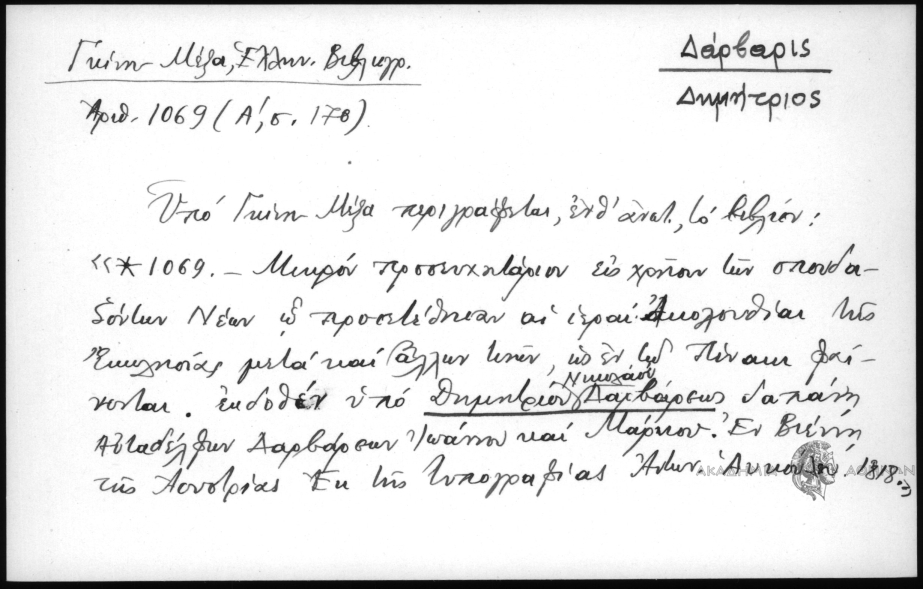 Γκίνη - Μέξα, Ἑλλην. Βιβλιογρ.
Ἀριθ. 1069 (Α', σ. 170)
Δάρβαρις
Δημήτριος
Ὑπό Γκίνη - Μέξα περιγράφεται, ἐνθ' ἀνωτ., τό βιβλίον:
«* 1069. – Μικρόν προσευχητάριον εἰς χρῆσιν τῶν σπουδα-
ζόντων Νέων ᾧ προσετέθησαν αἱ ἱεραί Ἀκολουθίαι τῆς
Ἐκκλησίας μετά καί ἄλλων τινῶν, ὡς ἐν τῷ Πίνακι φαί-
νονται. ἐκδοθέν ὑπό Δημητρίου Νικολάου Δαρβάρεως δαπάνῃ
Αὐταδέλφων Δαρβάρεων Ἰωάννου καί Μάρκου. Ἐν Βιέννῃ
τῆς Αουστρίας Ἐκ τῆς τυπογραφίας Ἀντων. 1818.»
ΑΚΑΔΗΜΙΑ ΑΘΗΝΩΝ